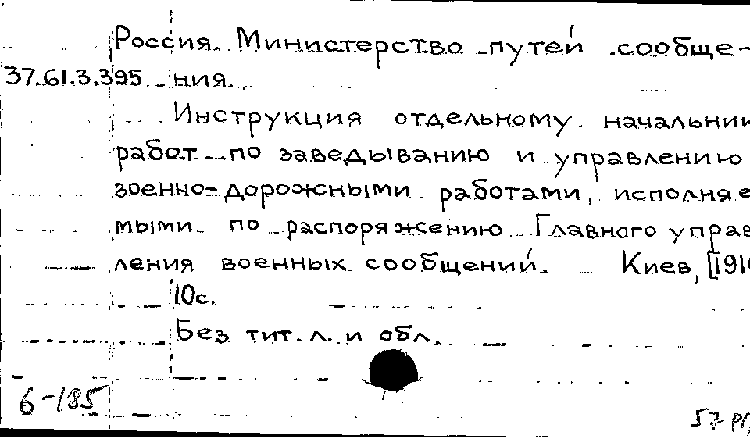 Россия. Министерство путей сообще-
37.61.3.395 ния.
Инструкция отдельному начальник
работ по заведыванию и управлению
военно-дорожными работами, исполняе
мыми по распоряжению Главного управ
ления военных сообщений. Киев, [191
10с.
Без тит.л. и обл.
6-185
57